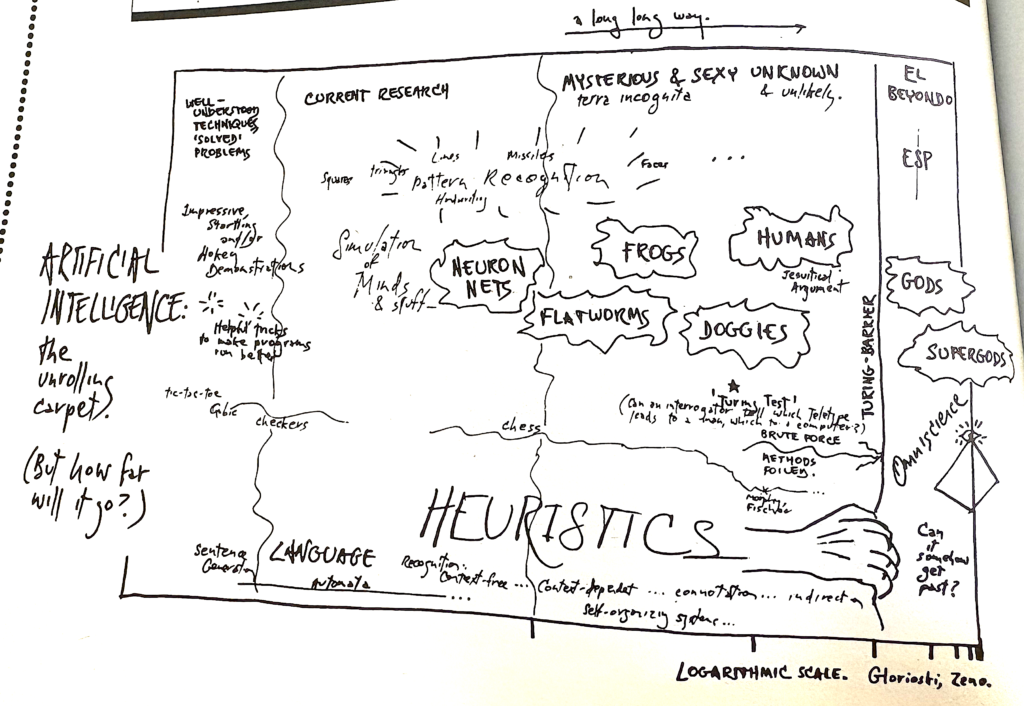 a long long way.
WELL-
UNDERSTOOD
TECHNIQUES,
'SOLVED'
PROBLEMS
CURRENT RESEARCH
MYSTERIOUS & SEXY UNKNOWN
terra incognita & unlikely.
EL
BEYONDO
ESP
Lines
Missiles
Faces
...
Squares
triangles
Pattern Recognition
Handwriting
Impressive,
Startling
and/or
Hokey
Demonstrations
Simulation
of
Minds
& stuff
NEURON
NETS
FROGS
HUMANS
Jesuitical
Argument
FLATWORMS
DOGGIES
GODS
SUPERGODS
ARTIFICIAL
INTELLIGENCE:
the
unrolling
carpet.
(But how far
will it go?)
Helpful tricks
to make programs
run better
TURING-BARRIER
'Turing Test'
(Can an interrogator tell which Teletype
leads to a man, which to a computer?)
tic-tac-toe
Cubic
checkers
chess
BRUTE FORCE
METHODS
FOILED.
...
Omniscience
HEURISTICS
Can
it
somehow
get
past?
Sentence
Generation
LANGUAGE
Automata
Recognition:
Context-free ... Context-dependent ... connotation ... indirection
... Self-organizing systems ...
LOGARITHMIC SCALE. Glorioski, Zeno.